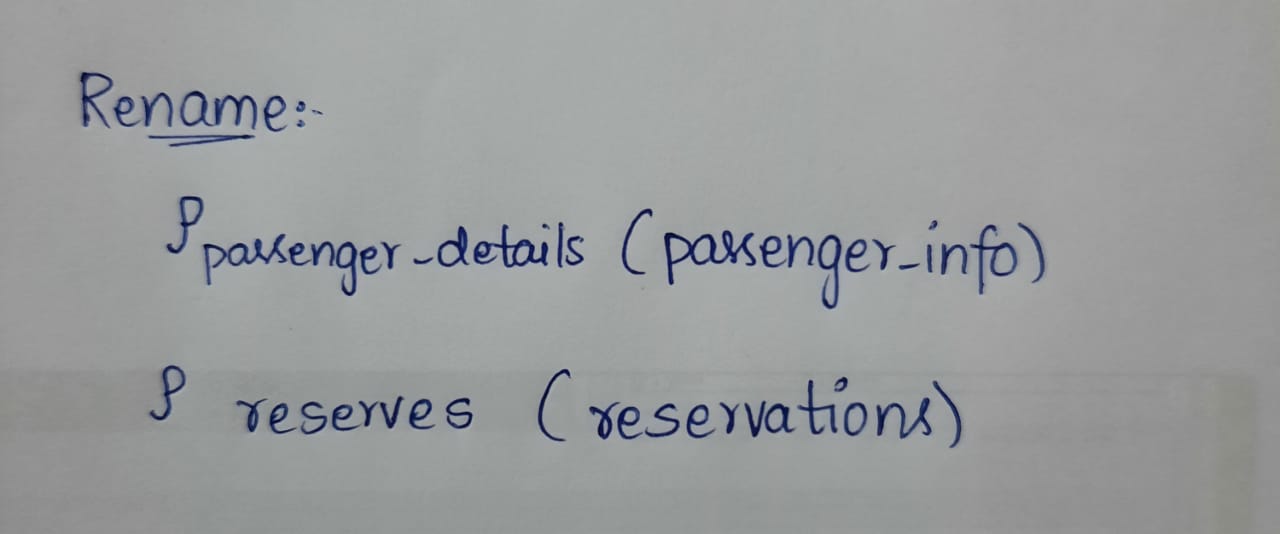 Rename:-
ρ passenger-details (passenger-info)
ρ reserves (reservations)